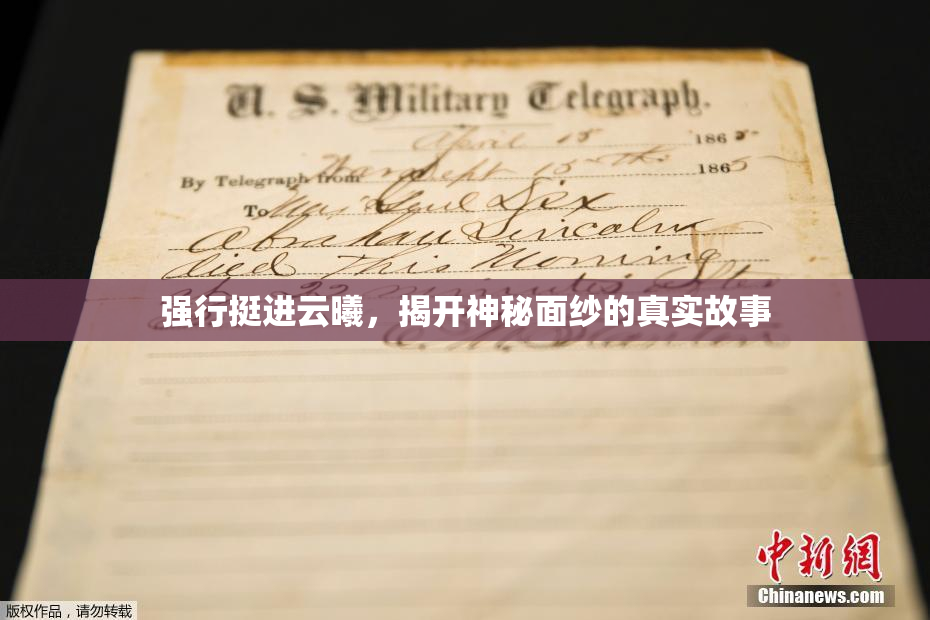 U. S. Military Telegraph.
April 15 1865
By Telegraph from War Dept 15th 1865
To Maj Genl Dix
Abraham Lincoln
died This Morning
22 minutes after
强行挺进云曦，揭开神秘面纱的真实故事
E. M. Stanton
中新网
Chinanews.com
版权作品，请勿转载